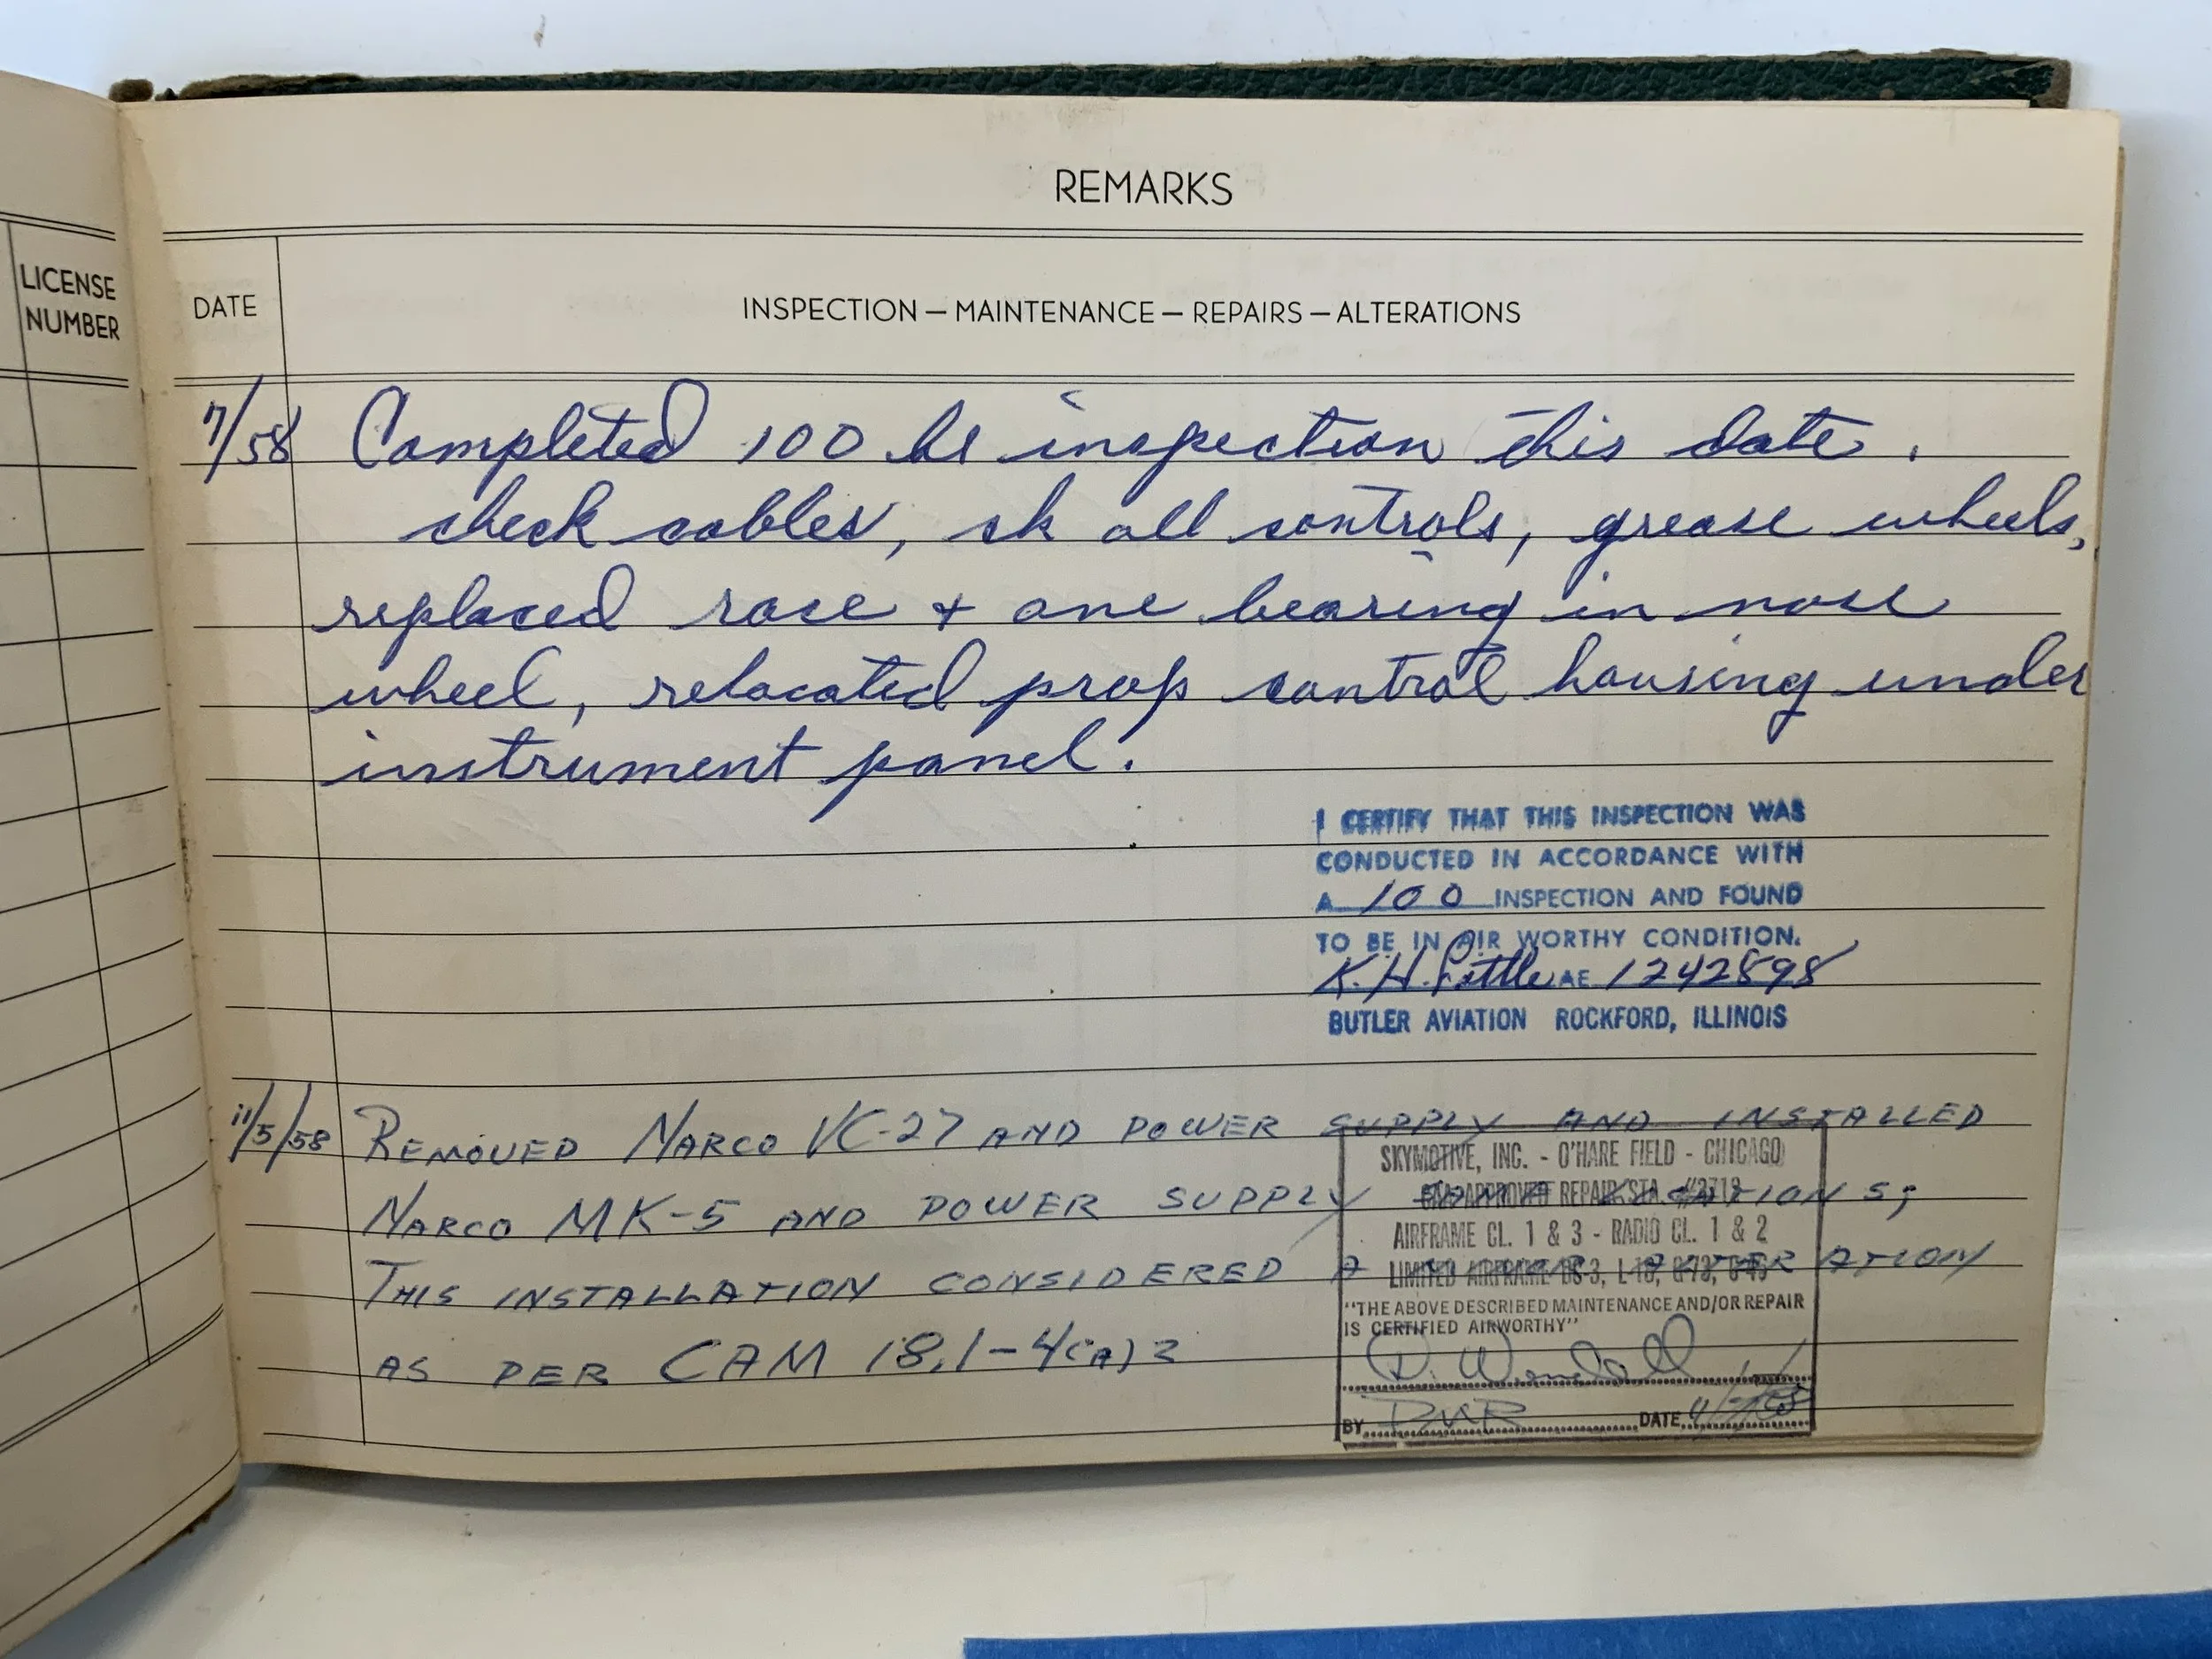 REMARKS
LICENSE
NUMBER
DATE
INSPECTION — MAINTENANCE — REPAIRS — ALTERATIONS
7/58 Completed 100 hr inspection this date.
check cables, ck all controls, grease wheels,
replaced race + one bearing in nose
wheel, relocated prop control housing under
instrument panel.
I CERTIFY THAT THIS INSPECTION WAS
CONDUCTED IN ACCORDANCE WITH
A 100 INSPECTION AND FOUND
TO BE IN AIR WORTHY CONDITION.
K.H. AE 1242898
BUTLER AVIATION ROCKFORD, ILLINOIS
11/5/58 REMOVED NARCO VC-27 AND POWER SUPPLY AND INSTALLED
NARCO MK-5 AND POWER SUPPLY LOCATIONS;
THIS INSTALLATION CONSIDERED A ALTERATION
AS PER CAM 18.1-4(A)2
SKYMOTIVE, INC. - O'HARE FIELD - CHICAGO
APPROVED REPAIR STA. #2713
AIRFRAME CL. 1 & 3 - RADIO CL. 1 & 2
LIMITED AIRFRAME
"THE ABOVE DESCRIBED MAINTENANCE AND/OR REPAIR
IS CERTIFIED AIRWORTHY"
BY DATE